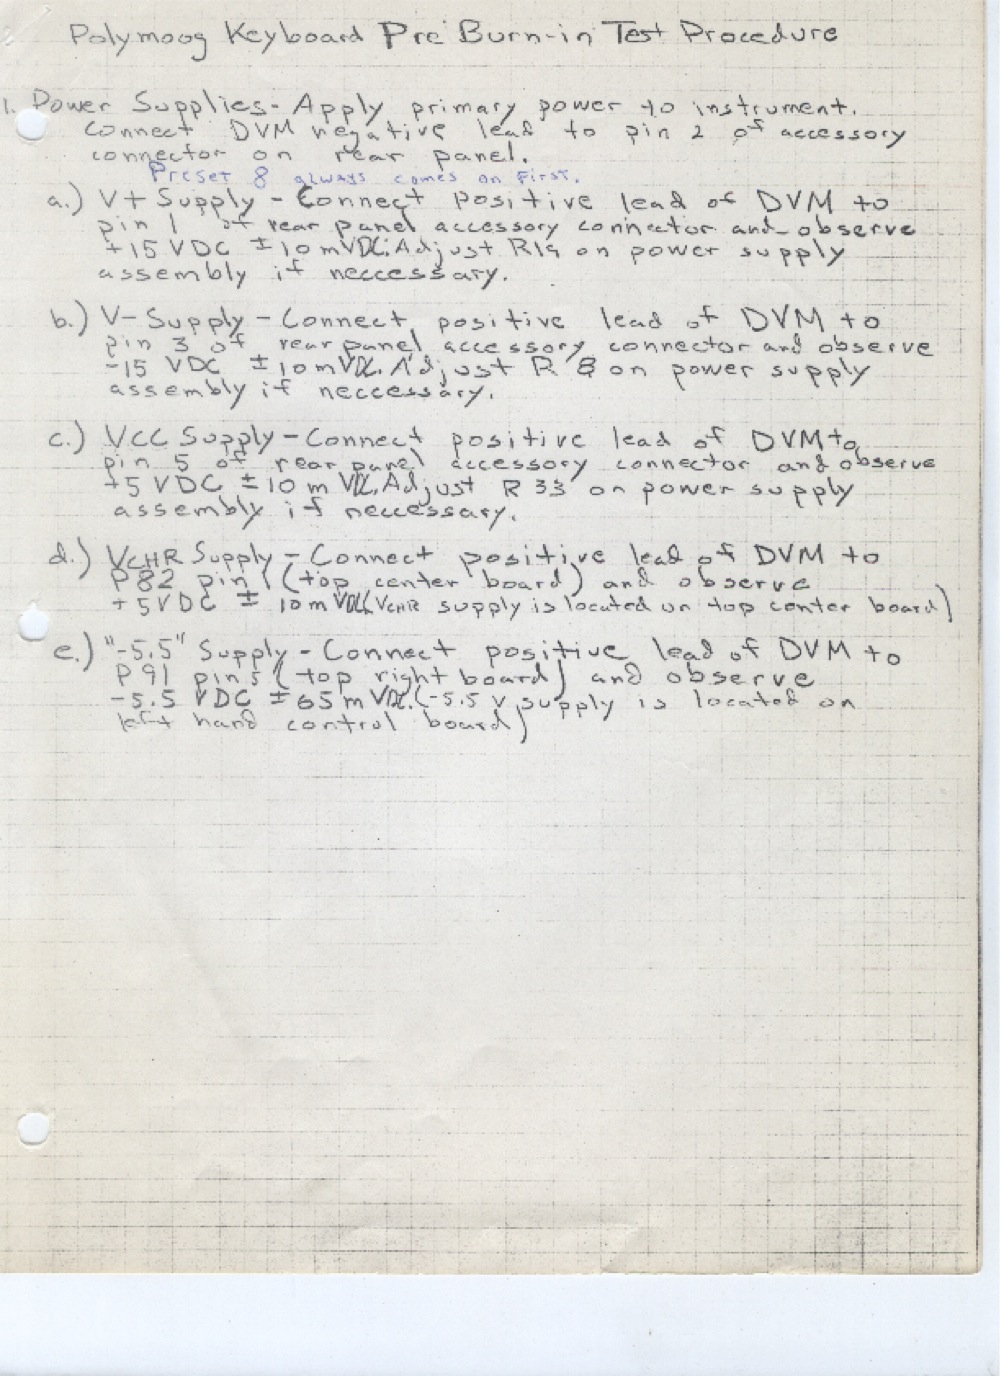 Polymoog Keyboard Pre Burn-in Test Procedure
1. Power Supplies - Apply primary power to instrument.
Connect DVM negative lead to pin 2 of accessory
connector on rear panel.
Preset 8 always comes on First.
a.) V+ Supply - Connect positive lead of DVM to
pin 1 of rear panel accessory connector and observe
+15 VDC ±10 mVDC. Adjust R19 on power supply
assembly if neccessary.
b.) V- Supply - Connect positive lead of DVM to
pin 3 of rear panel accessory connector and observe
-15 VDC ±10 mVDC. Adjust R 8 on power supply
assembly if neccessary.
c.) VCC Supply - Connect positive lead of DVM to
pin 5 of rear panel accessory connector and observe
+5 VDC ±10 mVDC. Adjust R 33 on power supply
assembly if neccessary.
d.) VCHR Supply - Connect positive lead of DVM to
P82 pin 1 (top center board) and observe
+5VDC ± 10mVDC (VCHR supply is located on top center board)
e.) "-5.5" Supply - Connect positive lead of DVM to
P91 pin 5 (top right board) and observe
-5.5 VDC ±65 mVDC. (-5.5 V supply is located on
left hand control board)